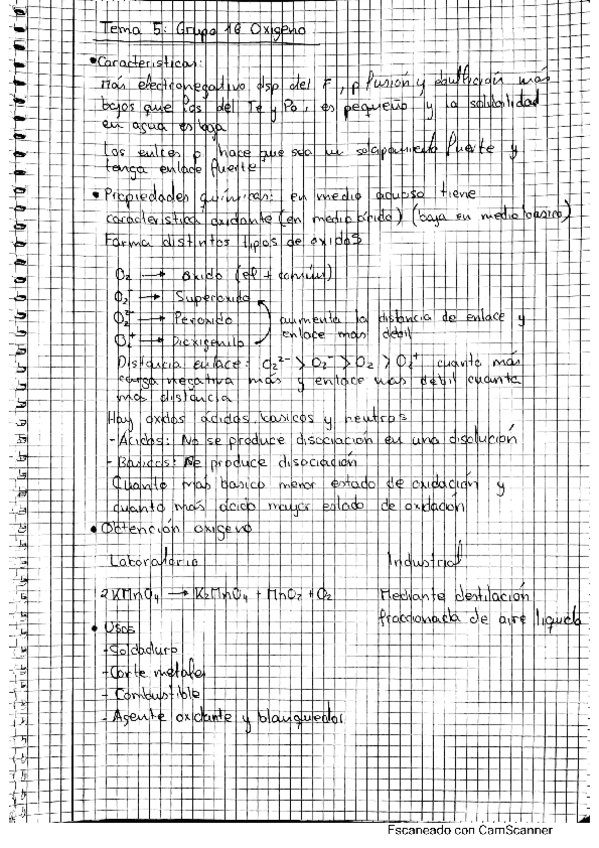 Tema 5: Grupo 16 Oxígeno
• Características:
más electronegativo dsp del F, p fusión y ebullición más
bajos que los del Te y Po, es pequeño y la solubilidad
en agua es baja
Los enlces p hace que sea un solapamiento fuerte y
tenga enlace fuerte
• Propiedades químicas: en medio acuoso tiene
característica oxidante (en medio ácido) (baja en medio básico)
Forma distintos tipos de oxidos
O₂ → oxido (el + común)
O₂⁻ → Superoxido
O₂²⁻ → Peroxido
O₂⁺ → Dioxigenilo
aumenta la distancia de enlace y
enlace mas débil
Distancia enlace: O₂²⁻ > O₂⁻ > O₂ > O₂⁺ cuanto más
carga negativa más y enlace mas débil cuanta
mas distancia
Hay oxidos ácidos, basicos y neutros
- Acidos: No se produce disociacion en una disolución
- Basicos: Se produce disociación
Cuanto mas basico menor estado de oxidación y
cuanto más ácido mayor estado de oxidación
• Obtención oxigeno
Laboratorio
Industrial
2KMnO₄ → K₂MnO₄ + MnO₂ + O₂
Mediante destilación
fraccionada de aire liquido
• Usos
- Soldadura
- Corte metales
- Combustible
- Agente oxidante y blanqueador
Escaneado con CamScanner